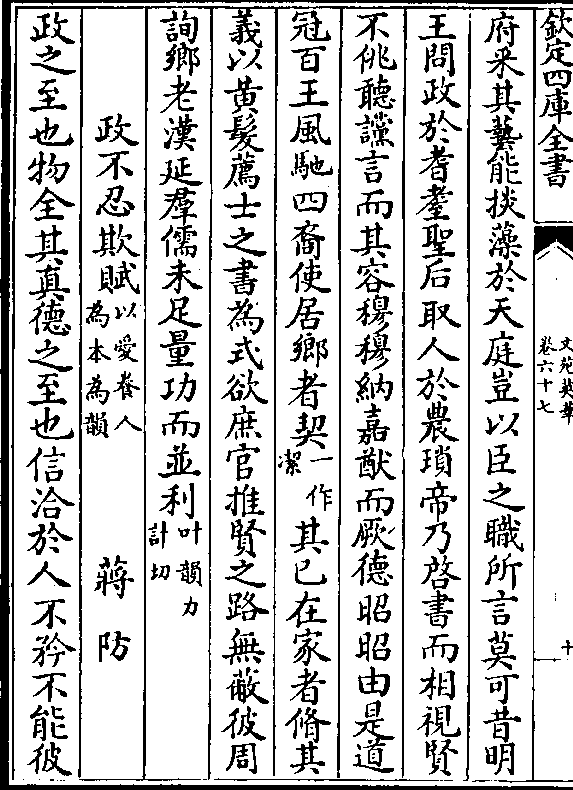 欽定四庫全書
文苑英華
卷六十七
十
府采其藝能掞藻於天庭豈以臣之職所言莫可昔明
王問政於耆耋聖后取人於農瑣帝乃啓書而相視賢
不佻聽讜言而其容穆穆納嘉猷而厥德昭昭由是道
冠百王風馳四裔使居鄉者契一作潔其已在家者脩其
義以黃髮薦士之書為式欲庶官推賢之路無蔽彼周
詢鄉老漢延羣儒未足量功而並利叶韻力計切
政不忍欺賦以愛養人為本為韻 蔣防
政之至也物全其真德之至也信洽於人不矜不能彼